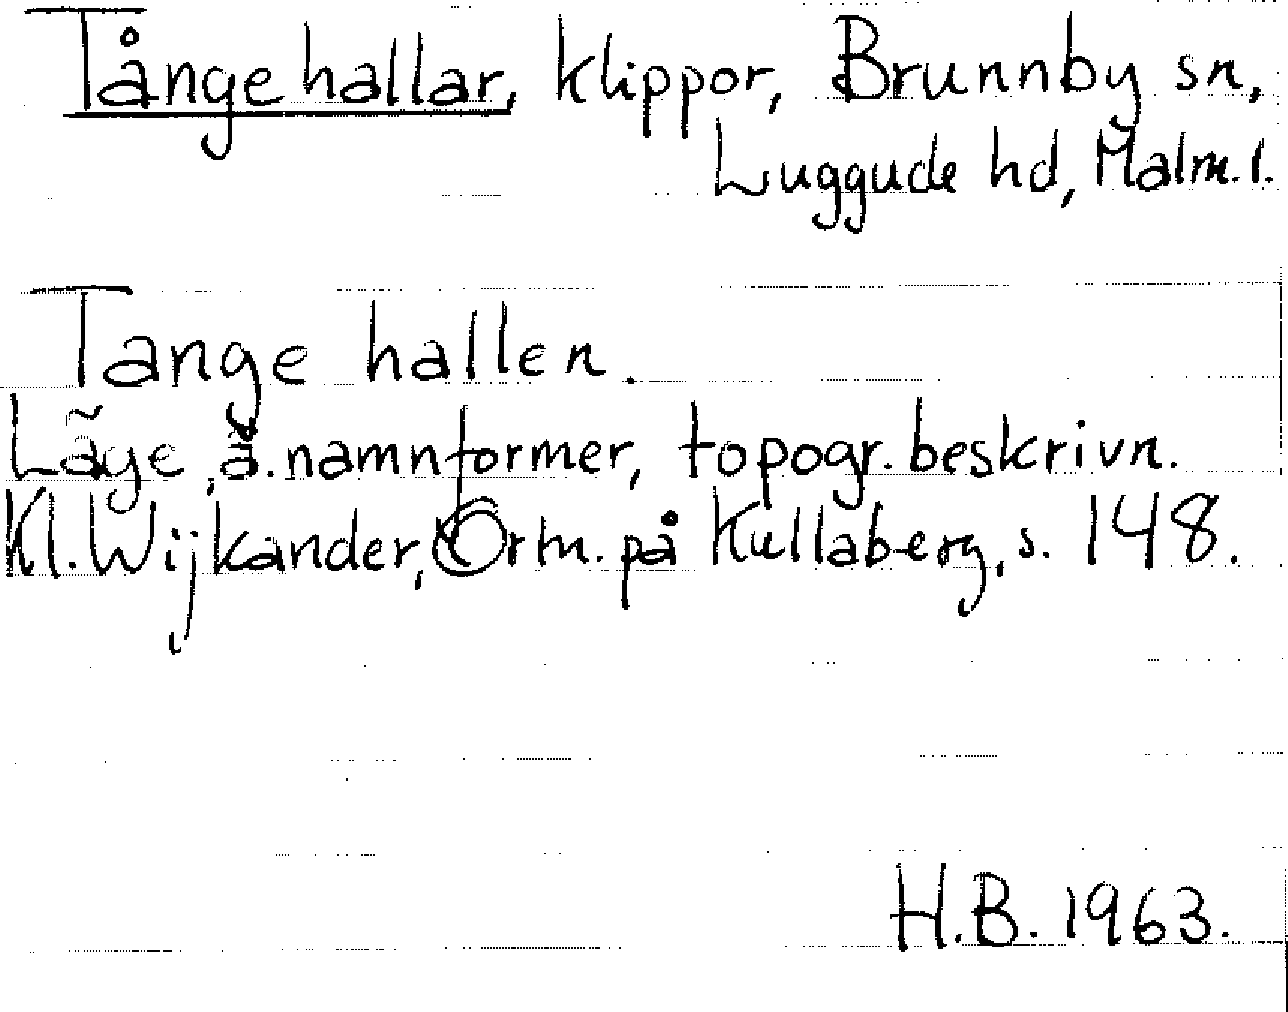 Tånge hallar, klippor, Brunnby sn,
Luggude hd, Malm. l.
Tange hallen.
Läge, ä. namnformer, topogr. beskrivn.
Kl. Wijkander, Ortn. på Kullaberg, s. 148.
H.B. 1963.